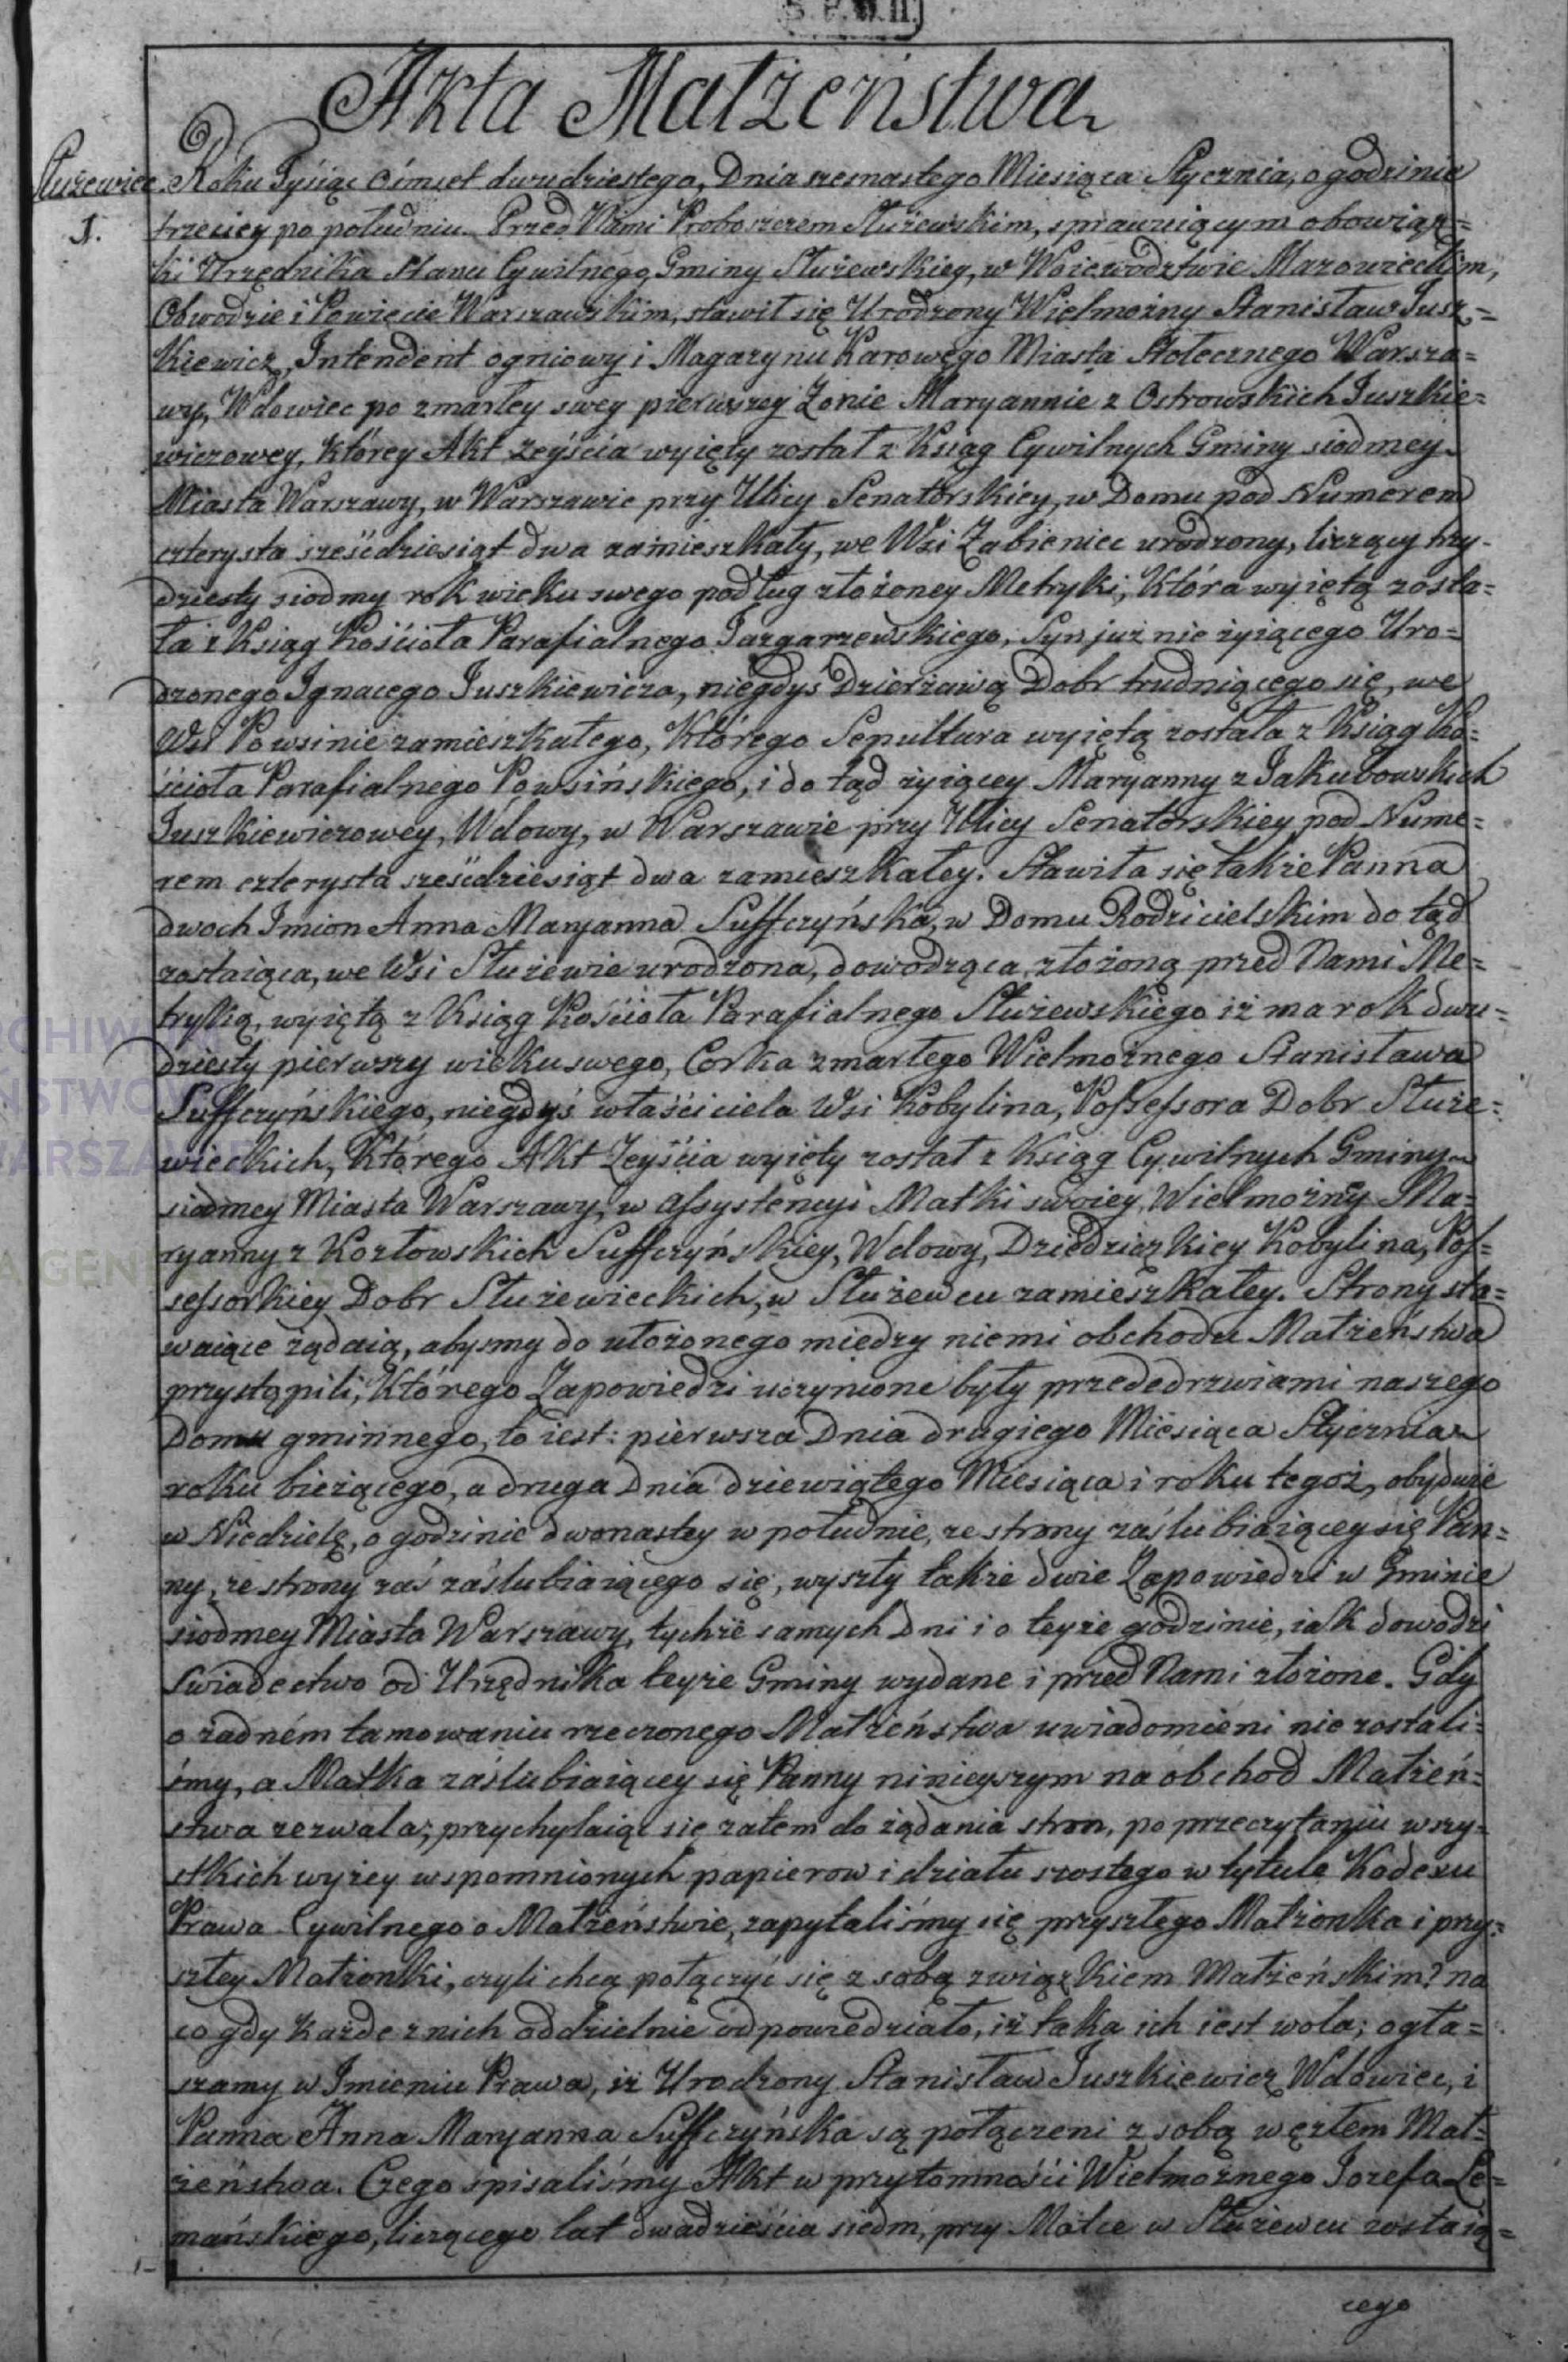 Akta Małżeństwa
Służewiec
1.
Roku Tysiąc ośmset dwudziestego, Dnia szesnastego Miesiąca Stycznia, o godzinie
trzeciey po południu. Przed Nami Proboszczem Służewskim, sprawuiącym obowiąz=
ki Urzędnika Stanu Cywilnego Gminy Służewskiey, w Woiewodztwie Mazowieckim,
Obwodzie i Powiecie Warszawskim, stawił się Urodzony Wielmożny Stanisław Jusz=
kiewicz, Intendent ogniowy i Magazynu Karowego Miasta Stołecznego Warsza=
wy, Wdowiec po zmarłey swey pierwszey Żonie Maryannie z Ostrowskich Juszkie=
wiczowey, którey Akt zeyścia wyięty został z Ksiąg Cywilnych Gminy siodmey
Miasta Warszawy, w Warszawie przy Ulicy Senatorskiey, w Domu pod Numerem
czterysta sześćdziesiąt dwa zamieszkały, we Wsi Żabieniec urodzony, liczący trzy-
dziesty siodmy rok wieku swego podług złożoney Metryki, która wyiętą zosta=
ła z Ksiąg Kościoła Parafialnego Jazgarzewskiego, Syn już nie żyiącego Uro=
dzonego Ignacego Juszkiewicza, niegdyś Dzierżawą Dobr trudniącego się, we
Wsi Powsinie zamieszkałego, którego Sepultura wyiętą została z Ksiąg Ko=
ścioła Parafialnego Powsińskiego, i do tąd żyiącey Maryanny z Jakubowskich
Juszkiewiczowey, Wdowy, w Warszawie przy Ulicy Senatorskiey pod Nume=
rem czterysta sześćdziesiąt dwa zamieszkałey. Stawiła się także Panna
dwoch Imion Anna Maryanna Suffczyńska, w Domu Rodzicielskim do tąd
zostaiąca, we Wsi Służewie urodzona, dowodząca złożoną przed Nami Me=
tryką, wyiętą z Ksiąg Kościoła Parafialnego Służewskiego iż ma rok dwu=
dziesty pierwszy wieku swego, Corka zmarłego Wielmożnego Stanisława
Suffczyńskiego, niegdyś właściciela Wsi Kobylina, Possessora Dobr Służe=
wieckich, którego Akt Zeyścia wyięty został z Ksiąg Cywilnych Gminy
siodmey Miasta Warszawy, w assystencyi Matki swoiey, Wielmożney Ma=
ryanny z Kozłowskich Suffczyńskiey, Wdowy, Dziedziczkiey Kobylina, Pos=
sessorkiey Dobr Służewieckich, w Służewcu zamieszkałey. Strony sta=
waiące żądaią, abyśmy do ułożonego między niemi obchodu Małżeństwa
przystąpili, którego Zapowiedzi uczynione były przededrzwiami naszego
Domu gminnego, to iest: pierwsza Dnia drugiego Miesiąca Stycznia
roku bieżącego, a druga Dnia dziewiątego Miesiąca i roku tegoż, obydwie
w Niedzielę, o godzinie dwonastey w południe, ze strony zaślubiaiącey się Pan=
ny, ze strony zaś zaślubiaiącego się, wyszły także dwie Zapowiedzi w Gminie
siodmey Miasta Warszawy, tychże samych Dni i o teyże godzinie, iak dowodzi
Swiadectwo od Urzędnika teyże Gminy wydane i przed Nami złożone. Gdy
o żadném tamowaniu rzeczonego Małżeństwa uwiadomieni nie zostali=
śmy, a Matka zaślubiaiącey się Panny ninieyszym na obchod Małżeń=
stwa zezwala; przychylaiąc się zatem do żądania stron, po przeczytaniu wszy=
stkich wyżey wspomnionych papierow i działu szostego w tytule Kodexu
Prawa Cywilnego o Małżeństwie, zapytaliśmy się przyszłego Małżonka i przy=
szłey Małżonki, czyli chcą połączyć się z sobą związkiem Małżeńskim? na
co gdy każde z nich oddzielnie odpowiedziało, iż taka ich iest wola; ogła=
szamy w Imieniu Prawa, iż Urodzony Stanisław Juszkiewicz Wdowiec, i
Panna Anna Maryanna Suffczyńska są połączeni z sobą węzłem Mał=
żeństwa. Czego spisaliśmy Akt w przytomności Wielmożnego Jozefa Le=
mańskiego, liczącego lat dwadzieścia siedm, przy Matce w Służewcu zostaią=
cego